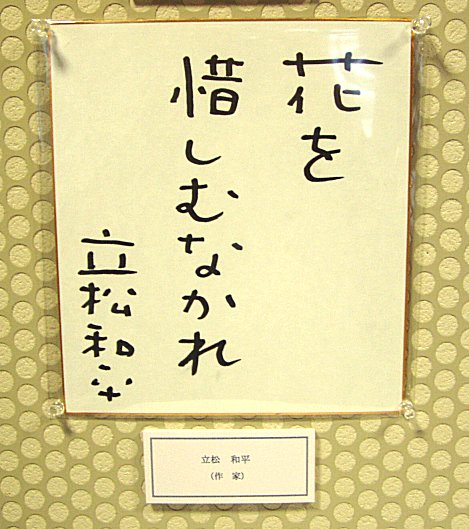 花を
惜しむなかれ
立松和平
立松 和平
(作 家)